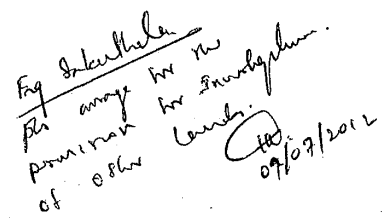 Eng Sakunthala
pls arrange for the
provision for Investigation
of other lands.
09/07/2012